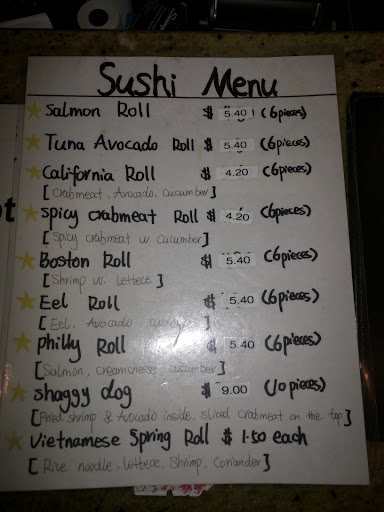 Sushi Menu
Salmon Roll $ 5.40 (6pieces)
Tuna Avocado Roll $ 5.40 (6pieces)
California Roll $ 4.20 (6pieces)
[Crabmeat, Avocado, Cucumber]
Spicy crabmeat Roll $ 4.20 (6pieces)
[Spicy crabmeat w. cucumber]
Boston Roll $ 5.40 (6pieces)
[Shrimp w. Lettece]
Eel Roll $ 5.40 (6pieces)
[Eel, Avocado, cucumber]
Philly Roll $ 5.40 (6pieces)
[Salmon, creamcheese, cucumber]
shaggy dog $ 9.00 (10 pieces)
[Fried shrimp & Avocado inside, sliced crabmeat on the top]
Vietnamese Spring Roll $ 1.50 each
[Rice noodle, lettece, Shrimp, Coriander]